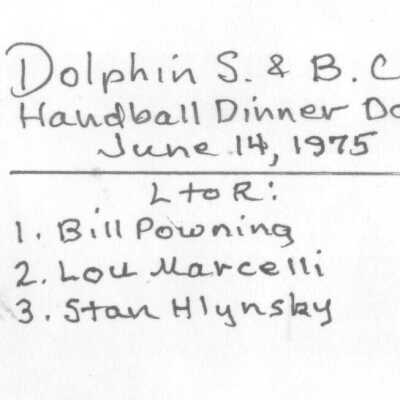 Dolphin S. & B. C
Handball Dinner Do
June 14, 1975
L to R:
1. Bill Powning
2. Lou Marcelli
3. Stan Hlynsky